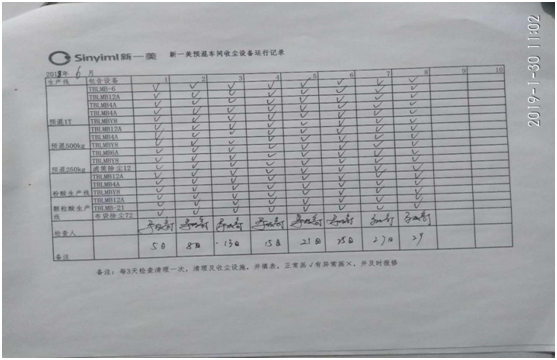 Sinyiml新一美 新一美预混车间收尘设备运行记录
6月
生产线 包含设备 1 2 3 4 5 6 7 8 9 10
TBLMB-6 ✓ ✓ ✓ ✓ ✓ ✓ ✓ ✓
TBLMB12A ✓ ✓ ✓ ✓ ✓ ✓ ✓ ✓
TBLMB4A ✓ ✓ ✓ ✓ ✓ ✓ ✓ ✓
TBLMB4A ✓ ✓ ✓ ✓ ✓ ✓ ✓ ✓
预混1T TBLMBY8 ✓ ✓ ✓ ✓ ✓ ✓ ✓ ✓
TBLMB12A ✓ ✓ ✓ ✓ ✓ ✓ ✓ ✓
TBLMB4A ✓ ✓ ✓ ✓ ✓ ✓ ✓ ✓
预混500kg TBLMBY8 ✓ ✓ ✓ ✓ ✓ ✓ ✓ ✓
TBLMB6A ✓ ✓ ✓ ✓ ✓ ✓ ✓ ✓
TBLMBY8 ✓ ✓ ✓ ✓ ✓ ✓ ✓ ✓
预混250kg 除尘12 ✓ ✓ ✓ ✓ ✓ ✓ ✓ ✓
TBLMB12A ✓ ✓ ✓ ✓ ✓ ✓ ✓ ✓
TBLMB4A ✓ ✓ ✓ ✓ ✓ ✓ ✓ ✓
粉酸生产线 TBLMBY8 ✓ ✓ ✓ ✓ ✓ ✓ ✓ ✓
TBLMB12A ✓ ✓ ✓ ✓ ✓ ✓ ✓ ✓
颗粒酸生产线 TBLMB-21 ✓ ✓ ✓ ✓ ✓ ✓ ✓ ✓
布袋除尘72 ✓ ✓ ✓ ✓ ✓ ✓ ✓ ✓
检查人
备注 5日 8日 13日 15日 21日 25日 27日 29
备注：每3天检查清理一次，清理及收尘设施，并填表，正常画✓有异常画×，并及时报修
2019-1-30 11:02